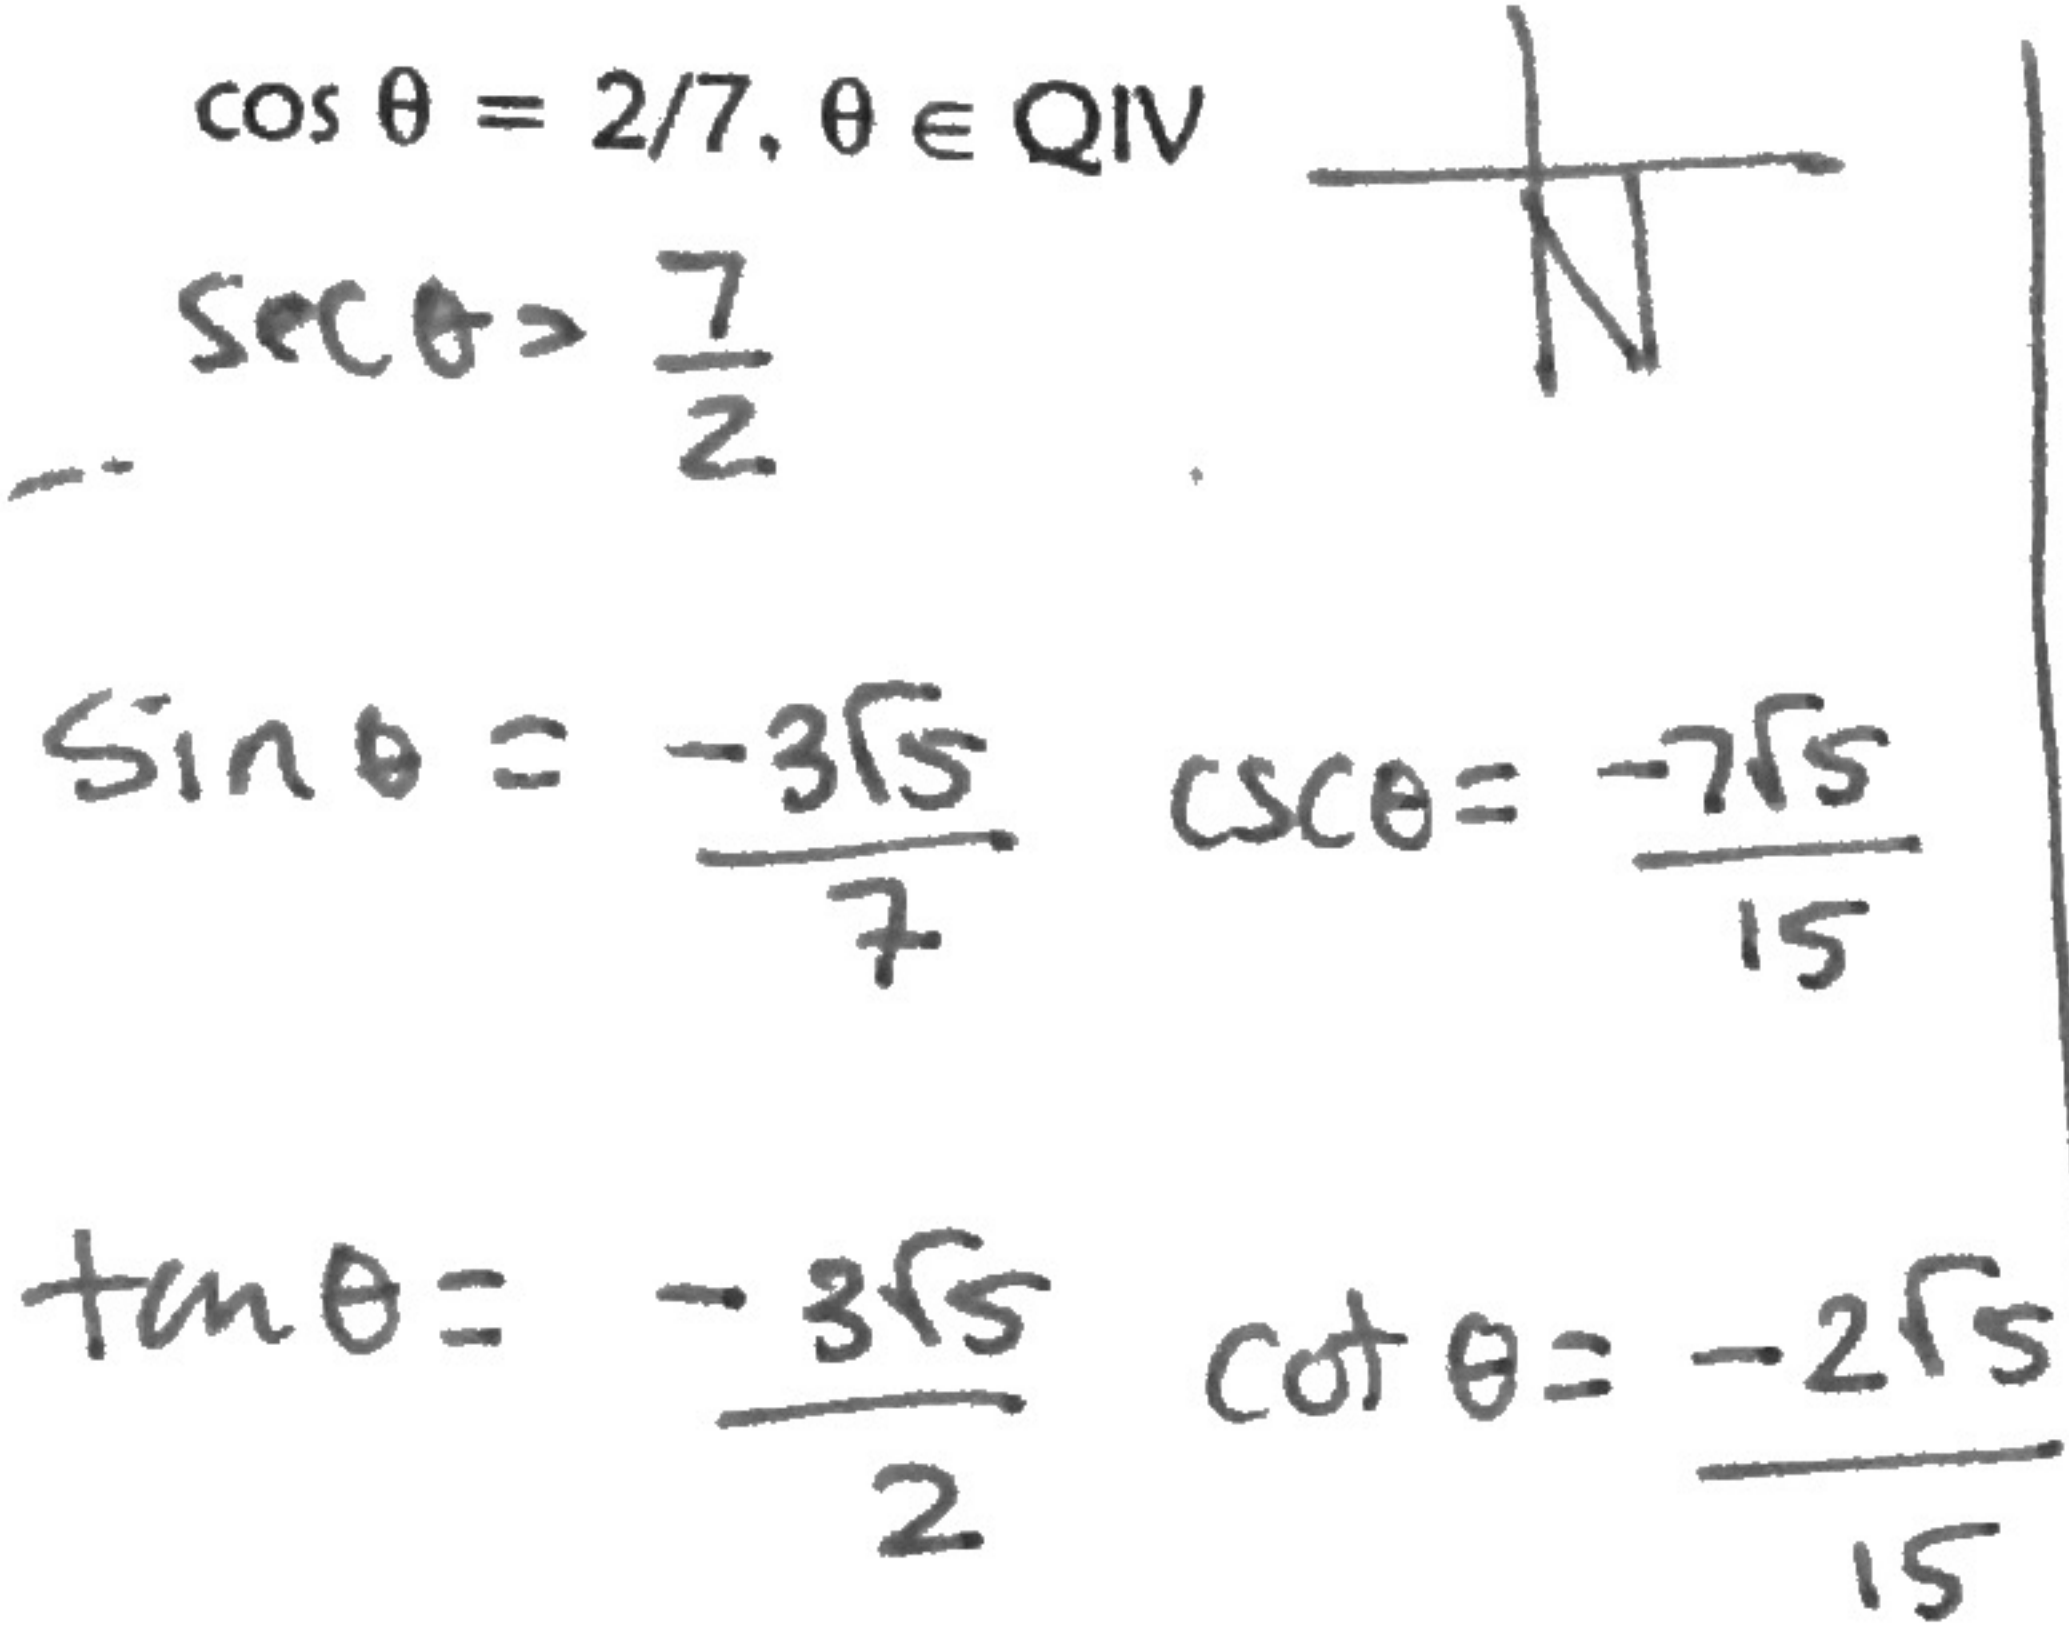 cos θ = 2/7, θ ∈ QIV
sec θ = 7/2
sin θ = -3√5/7 csc θ = -7√5/15
tan θ = -3√5/2 cot θ = -2√5/15